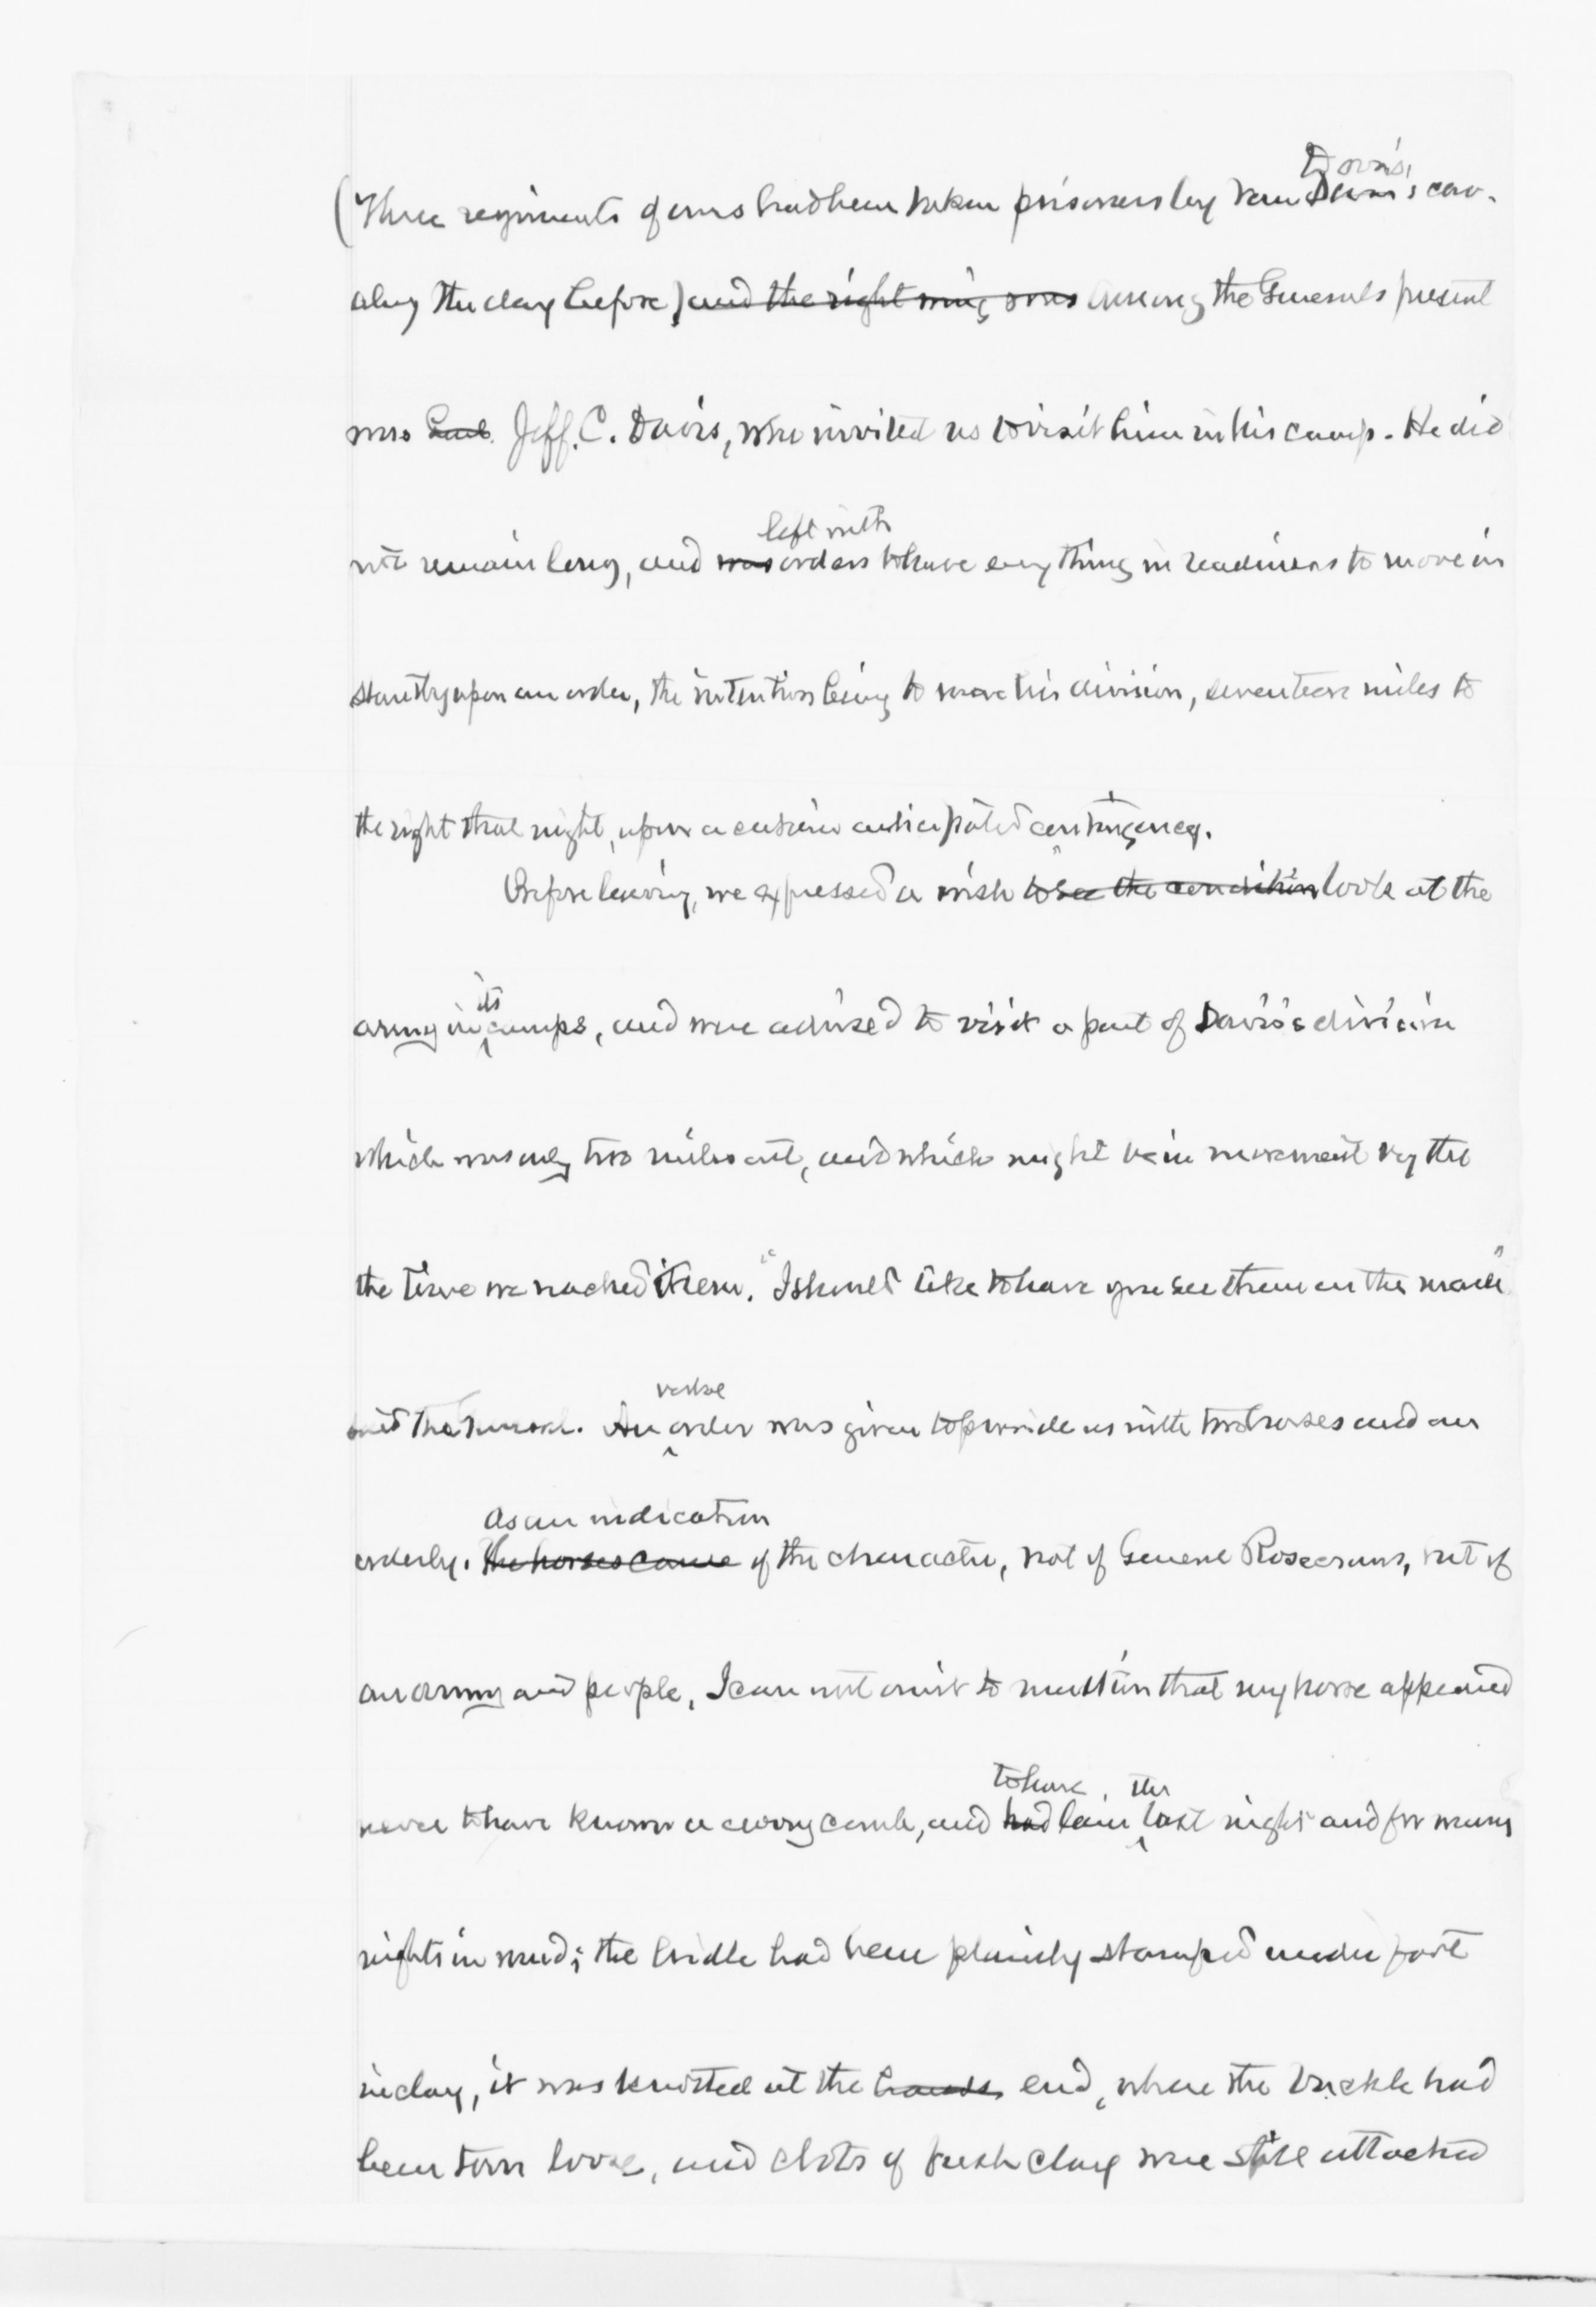 (Three regiments of ours had been taken prisoners by Van Dorn's cav-
alry the day before) and the right wing was Among the Generals present
was Genl. Jeff. C. Davis, who invited us to visit him in his camp. He did
left with
not remain long, and was orders to have every thing in readiness to move in
stantly upon an order, the intention being to move his division, seventeen miles to
the right that night, upon a certain anticipated contingency.
Before leaving, we expressed a wish to see the condition look at the
its
army in camps, and were advised to visit a part of Davis's division
which was only two miles out, and which might be in movement by the
the time we reached them. "I should like to have you see them on the march"
said the General. An order was given to provide us with two horses and an
As an indication
orderly. The horses came of the character, not of General Rosecrans, but of
our army and people, I can not omit to mention that my horse appeared
to have the
never to have known a curry comb, and had lain last night and for many
nights in mud; the bridle had been plainly stamped under foot
in clay, it was knotted at the end, where the buckle had
been torn loose, and clots of fresh clay were still attached